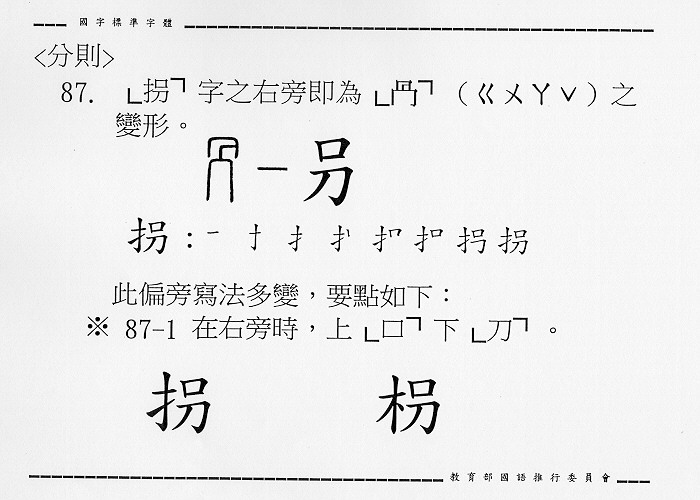 國字標準字體
<分則>
87. 「拐」字之右旁即為「冎」（ㄍㄨㄚˇ）之
變形。
冎—叧
拐：扌 扣 拐
此偏旁寫法多變，要點如下：
※ 87-1 在右旁時，上「口」下「刀」。
拐 枴
教育部國語推行委員會